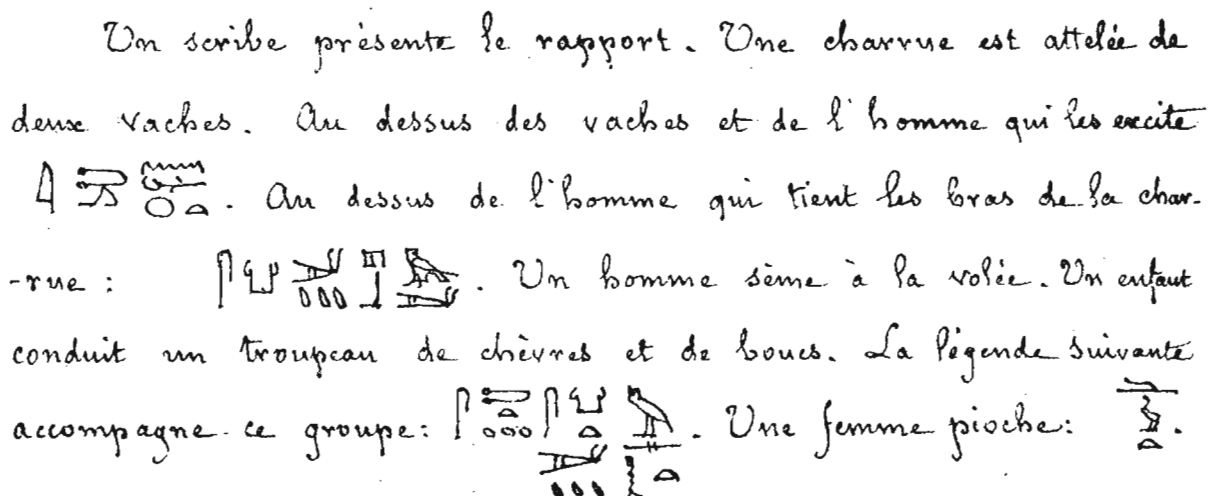 Un scribe présente le rapport. Une charrue est attelée de
deux vaches. Au dessus des vaches et de l'homme qui les excite
. Au dessus de l'homme qui tient les bras de la char-
-rue : . Un homme sème à la volée. Un enfant
conduit un troupeau de chèvres et de boucs. La légende suivante
accompagne ce groupe: . Une femme pioche: .